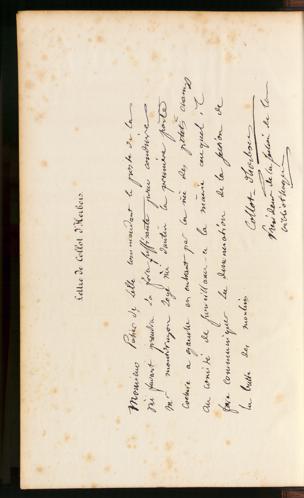 Lettre de Collot d'Herbois
Monsieur Potier de Lille commandant le poste de la
rue favart prendra la force suffisante pour conduire
Mr montmayou logé rue d'antin la premiere porte
cochere a gauche en entrant par la rue des petits champs
au comité de surveillance a la mairie auquel il
fera communiquer la dénonciation de la section de
la butte des moulins
Collot d'herbois
Président de la section de la
bibliotheque